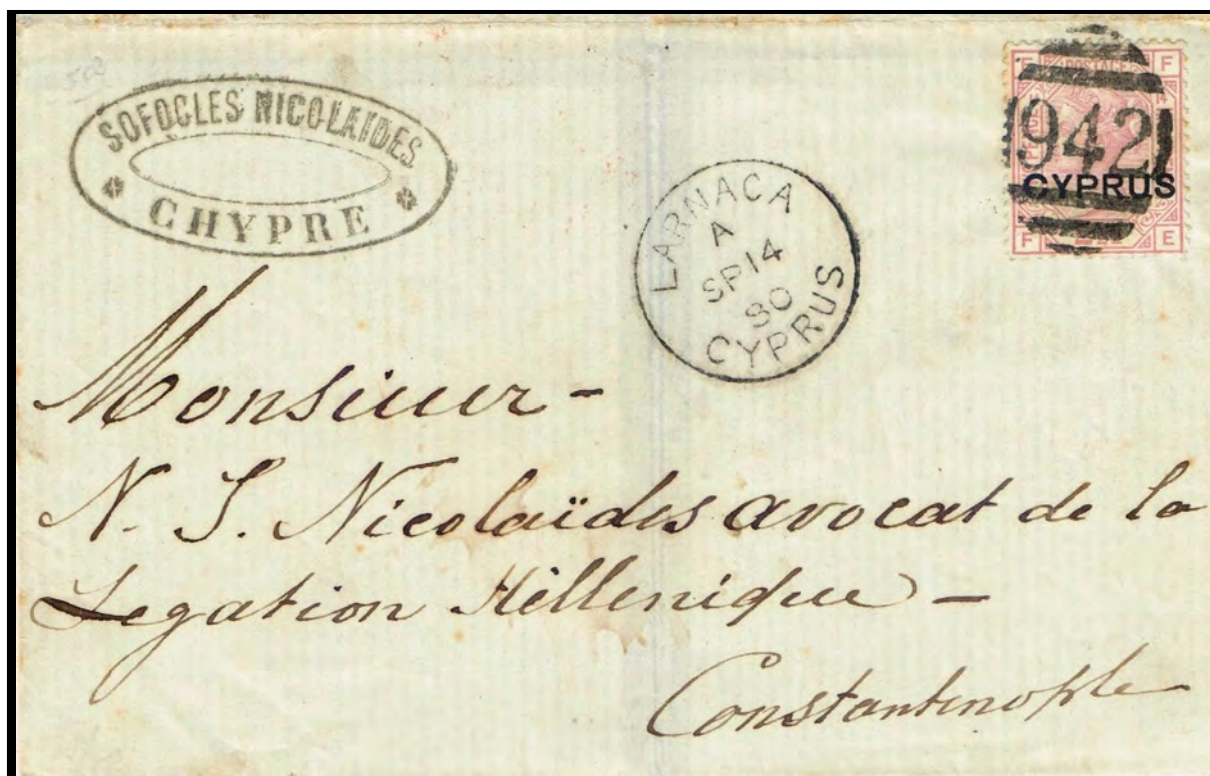 SOFOCLES NICOLAIDES
CHYPRE
LARNACA
A
SP 14
80
CYPRUS
POSTAGE
F
942
CYPRUS
F E
Monsieur -
N. S. Nicolaïdes avocat de la
Legation Hellenique -
Constantinople